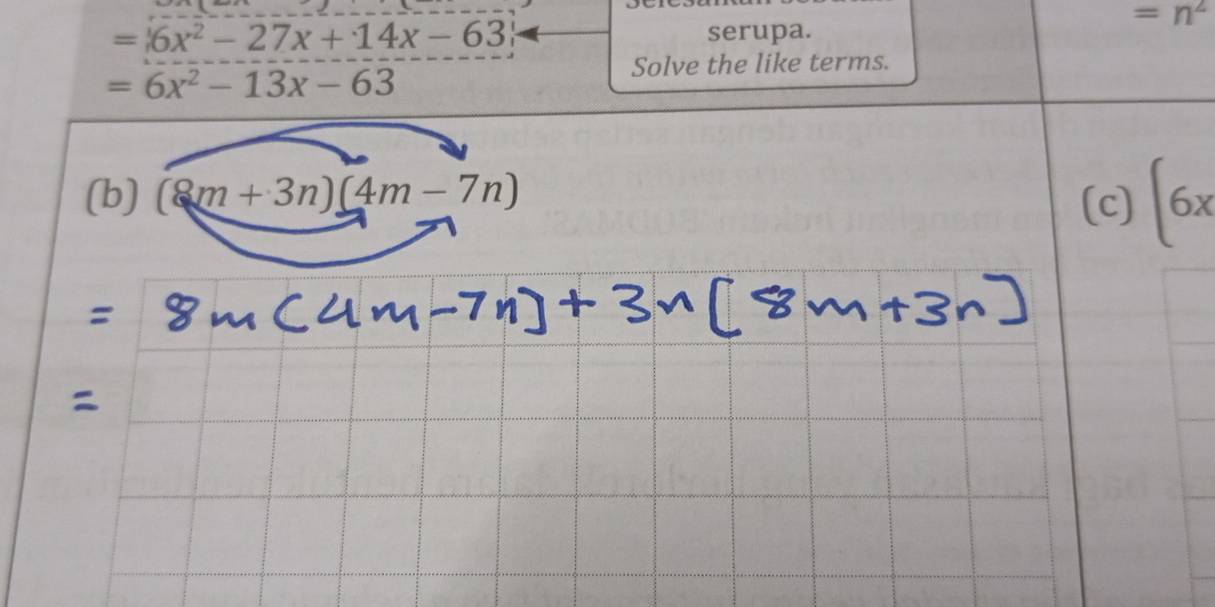 = 6x² − 27x + 14x − 63
serupa.
= n²
Solve the like terms.
= 6x² − 13x − 63
(b) (8m + 3n)(4m − 7n)
(c) (6x
= 8m(4m-7n] + 3n[8m+3n]
=